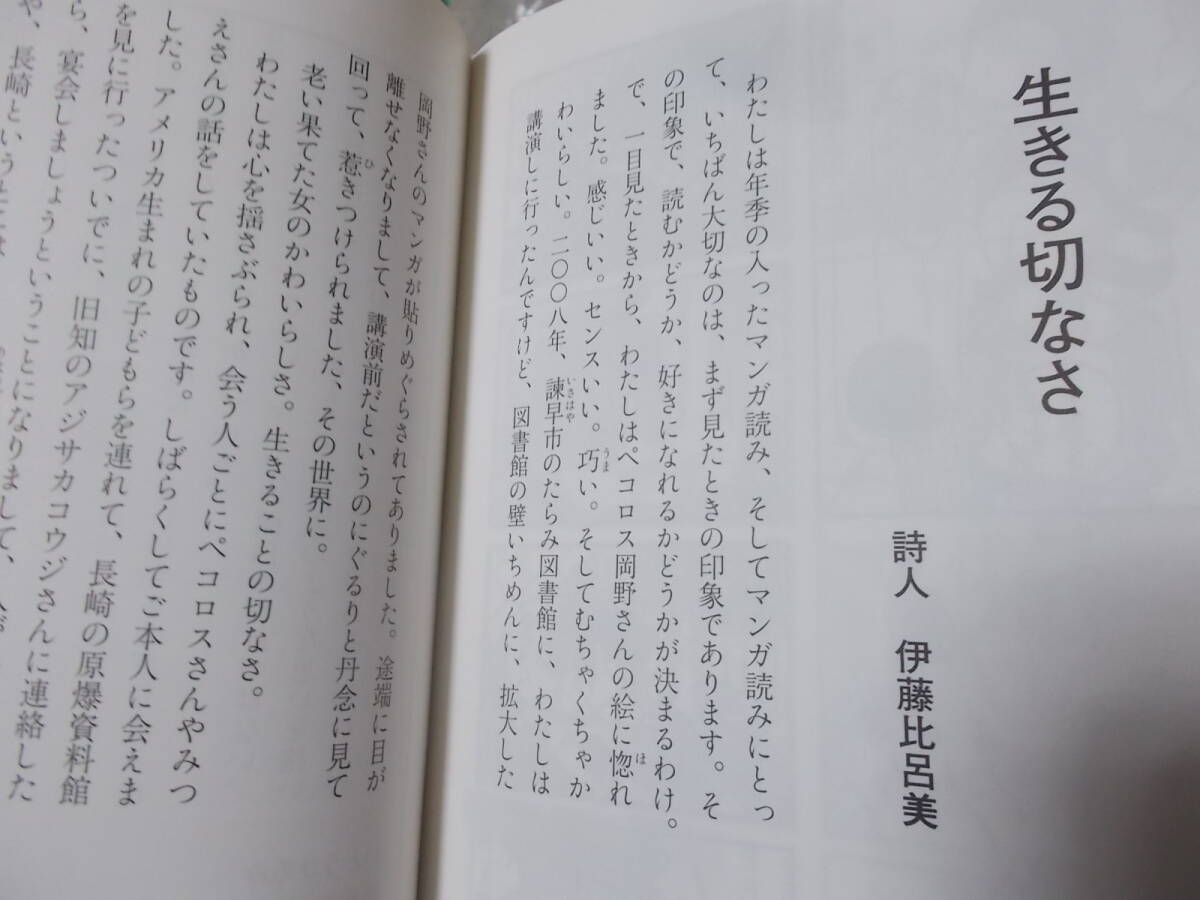 生きる切なさ
詩人　伊藤比呂美
わたしは年季の入ったマンガ読み、そしてマンガ読みにとっ
て、いちばん大切なのは、まず見たときの印象であります。そ
の印象で、読むかどうか、好きになれるかどうかが決まるわけ。
で、一目見たときから、わたしはペコロス岡野さんの絵に惚れ
ました。感じいい。センスいい。巧い。そしてむちゃくちゃか
わいらしい。二〇〇八年、諫早市のたらみ図書館に、わたしは
講演しに行ったんですけど、図書館の壁いちめんに、拡大した
岡野さんのマンガが貼りめぐらされてありました。途端に目が
離せなくなりまして、講演前だというのにぐるりと丹念に見て
回って、惹きつけられました、その世界に。
老い果てた女のかわいらしさ。生きることの切なさ。
わたしは心を揺さぶられ、会う人ごとにペコロスさんやみつ
えさんの話をしていたものです。しばらくしてご本人に会えま
した。アメリカ生まれの子どもらを連れて、長崎の原爆資料館
を見に行ったついでに、旧知のアジサカコウジさんに連絡した
ら、宴会しましょうということになりまして、
や、長崎というところは